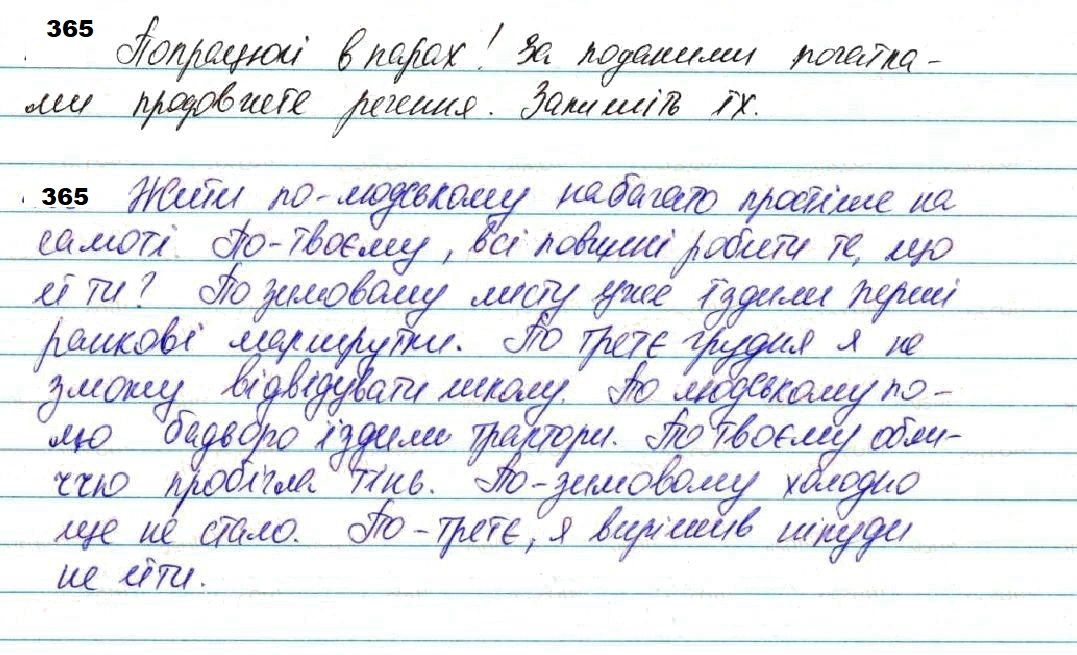 365 Попрацюйте в парах! За поданими початка-
ми продовжте речення. Запишіть їх.
365 Жити по-людському набагато простіше на
самоті. По-твоєму, всі повинні робити те, що
й ти? По зимовому місту уже їздили перші
ранкові маршрутки. По третє грудня я не
зможу відвідувати школу. По людському по-
лю бадьоро їздили трактори. По твоєму обли-
ччю пробігла тінь. По-зимовому холодно
ще не стало. По-третє, я вирішив нікуди
не йти.